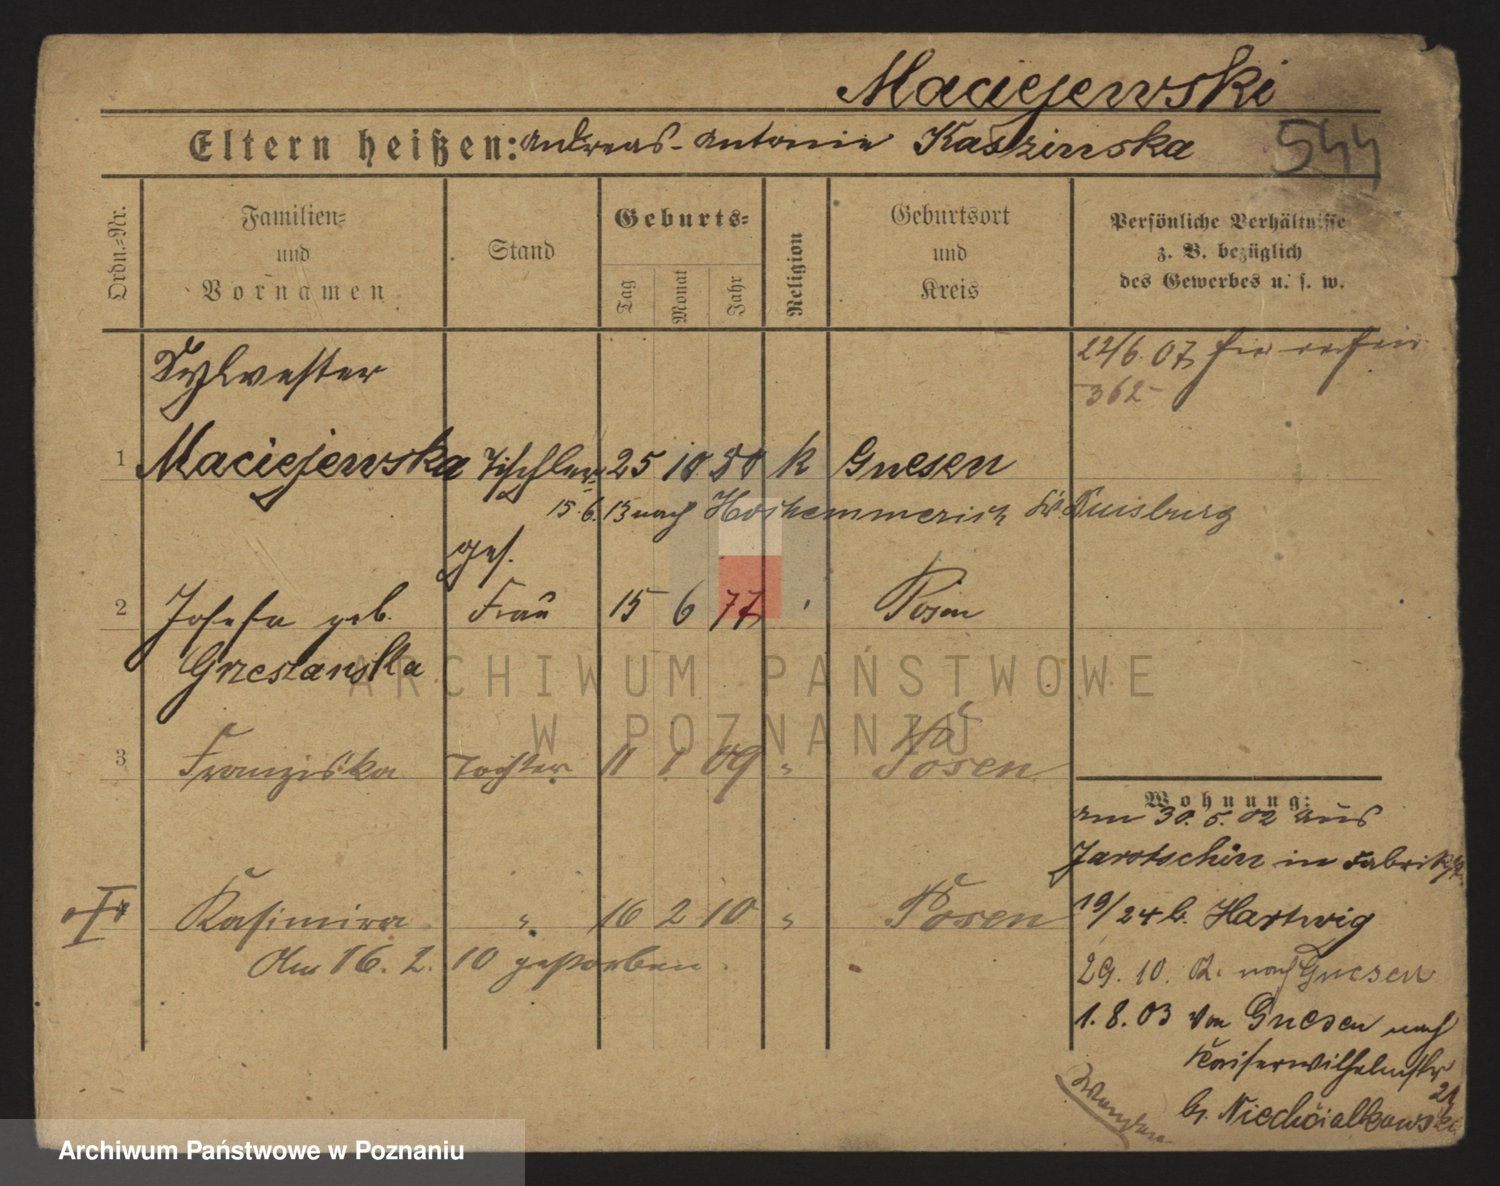 Maciejewski
Eltern heißen: Andreas - Antonie Kaszinska
544
Ordn.=Nr.
Familien=
und
Vornamen
Stand
Geburts=
Tag
Monat
Jahr
Religion
Geburtsort
und
Kreis
Persönliche Verhältnisse
z. B. bezüglich
des Gewerbes u. s. w.
22/6. 07
362
Sylvester
1 Maciejewska Tischler 25 10 80 k Gnesen
15. 6. 13 nach Duisburg
gef.
2 Josefa geb. Frau 15 6 77 Posen
3 Franziska Tochter 11 1 09 " Posen
Kasimira " 16 2 10 " Posen
Am 16. 2. 10 gestorben.
Wohnung:
am 30. 5. 02 aus
Jarotschin in Fabrikstr.
19/24 b. Hartwig
29. 10. 02. nach Gnesen
1. 8. 03 von Gnesen nach
Kaiserwilhelmstr
21
b. Niedzialkowski
ARCHIWUM PAŃSTWOWE
W POZNANIU
Archiwum Państwowe w Poznaniu